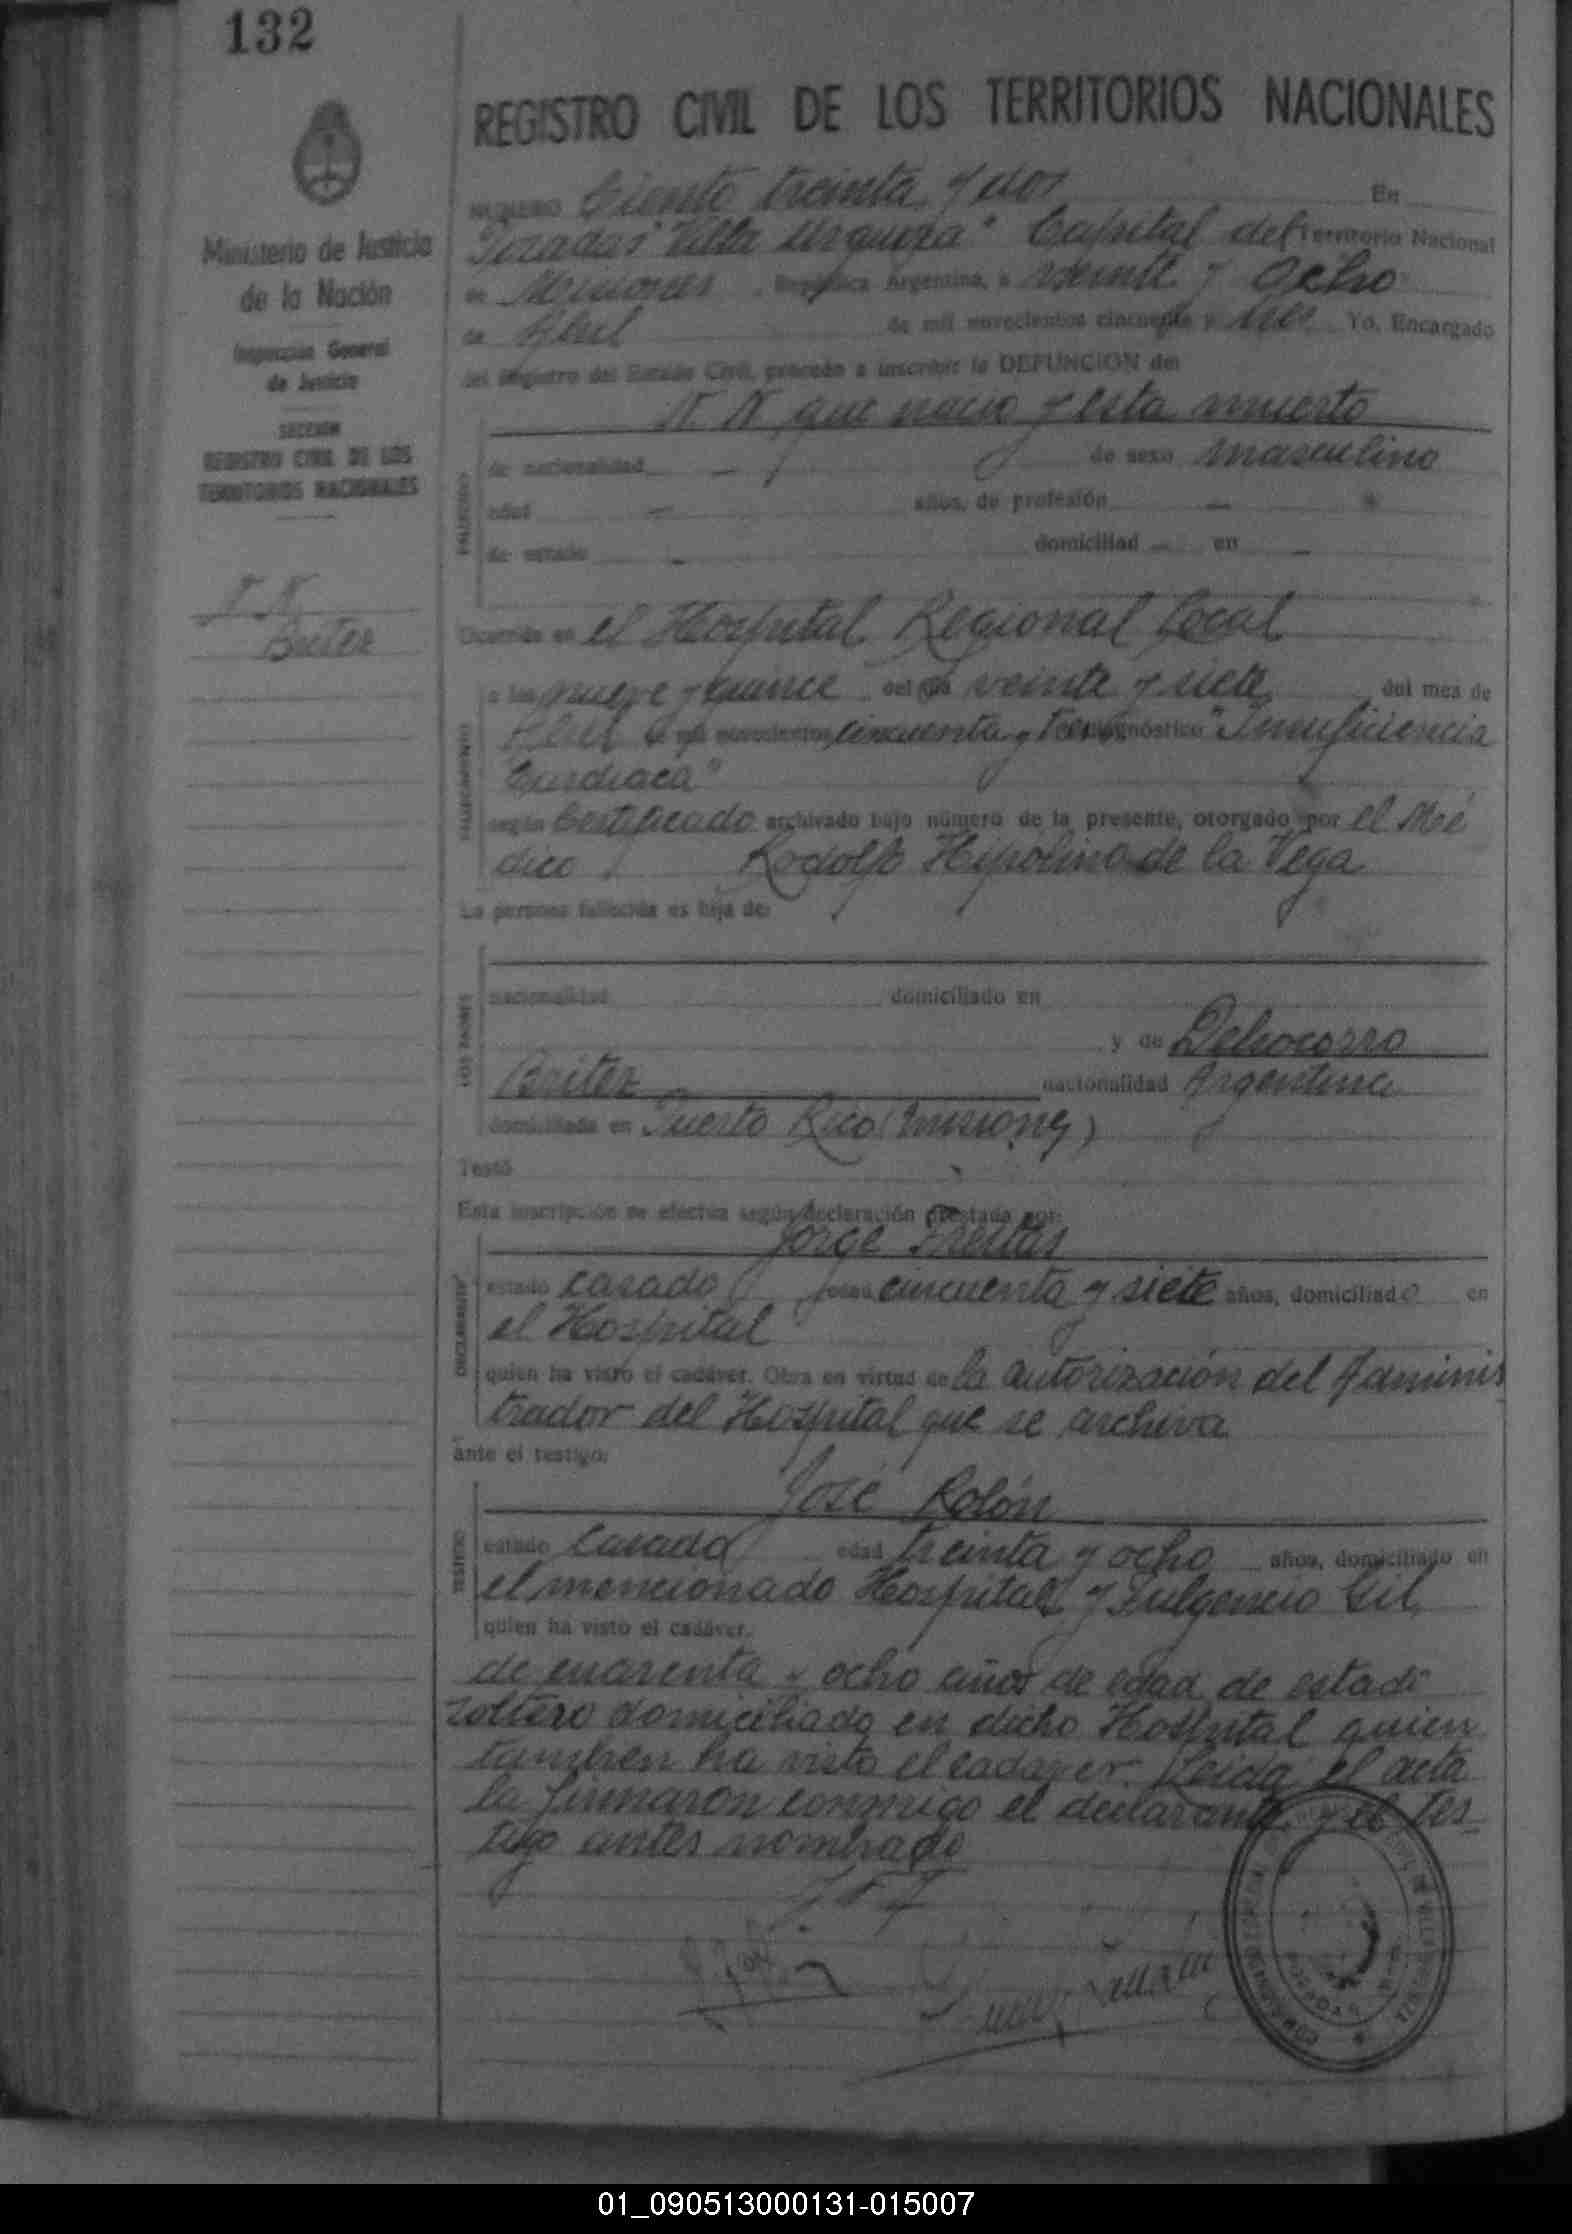 132
REGISTRO CIVIL DE LOS TERRITORIOS NACIONALES
NUMERO Ciento treinta y dos En
Posadas "Villa Urquiza" Capital del Territorio Nacional
de Misiones, República Argentina, a veinte y ocho
de Abril de mil novecientos cincuenta y tres Yo, Encargado
del Registro del Estado Civil, procedo a inscribir la DEFUNCION de:
N. N. que nacio y esta muerto
de nacionalidad - de sexo masculino
edad - años, de profesión -
de estado - domiciliad - en -
Ocurrida en el Hospital Regional Local
a las nueve y quince del día veinte y siete del mes de
Abril de mil novecientos cincuenta y tres diagnóstico "Insuficiencia
Cardiaca"
según Certificado archivado bajo número de la presente, otorgado por el Mé
dico Rodolfo Hipolino de la Vega
La persona fallecida es hija de:
nacionalidad domiciliado en
y de
Britez nacionalidad Argentina
domiciliada en Puerto Rico (Misiones)
Testó
Esta inscripción se efectúa según declaración prestada por:
Jorge Freitas
estado casado edad cincuenta y siete años, domiciliado en
el Hospital
quien ha visto el cadáver. Obra en virtud de la autorización del Adminis
trador del Hospital que se archiva
ante el testigo:
José Rolón
estado Casado edad treinta y ocho años, domiciliado en
el mencionado Hospital y Fulgencio Gil
quien ha visto el cadáver.
de cuarenta y ocho años de edad de estado
soltero domiciliado en dicho Hospital quien
tambien ha visto el cadaver. Leida el acta
la firmaron conmigo el declarante y el tes-
tigo antes nombrado
Ministerio de Justicia
de la Nación
Inspección General
de Justicia
SECCION
REGISTRO CIVIL DE LOS
TERRITORIOS NACIONALES
N. N.
Britez
FALLECIDO
FALLECIMIENTO
LOS PADRES
DECLARANTE
TESTIGO
01_090513000131-015007